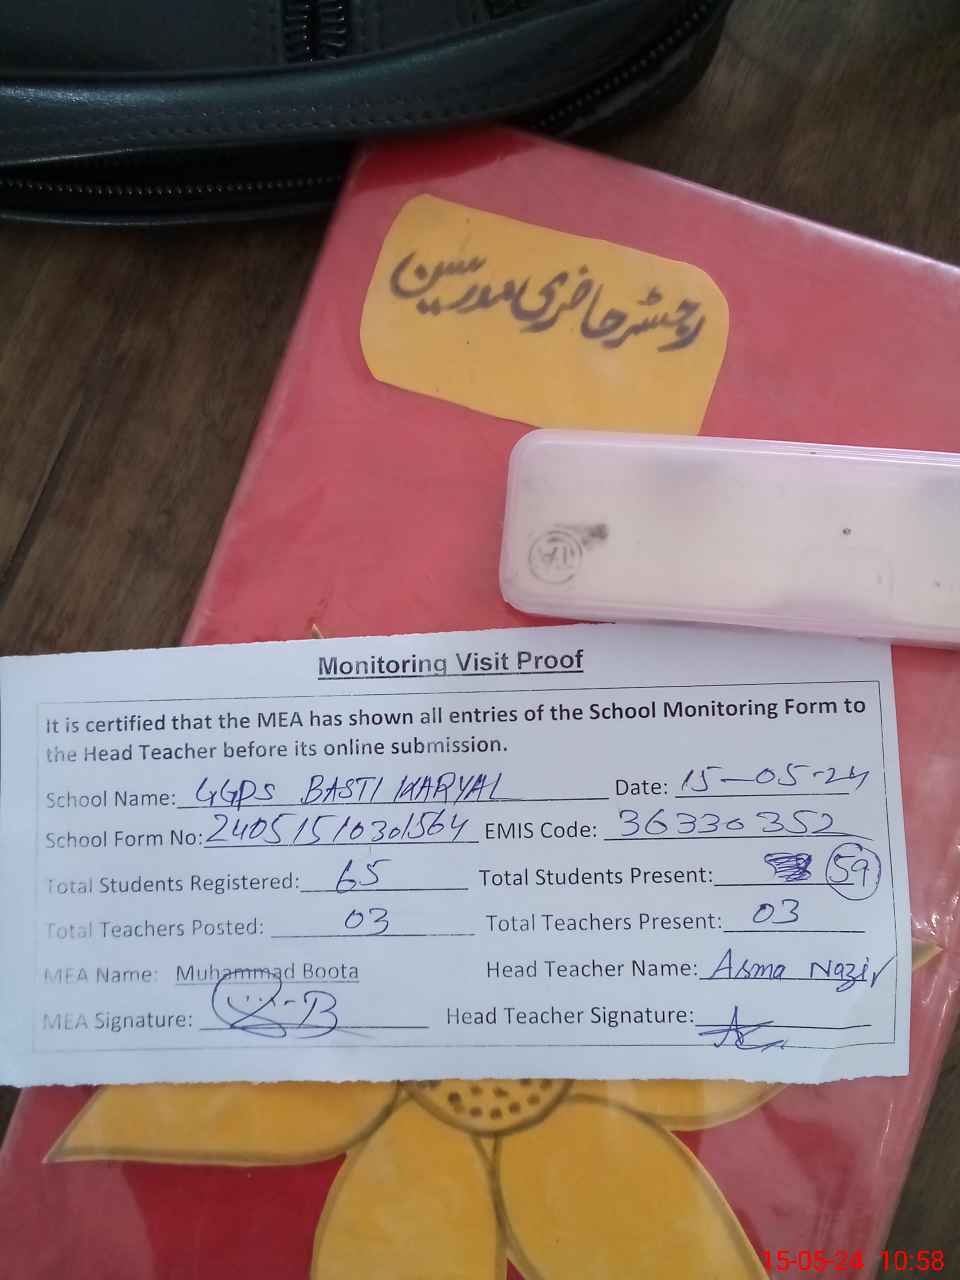 رجسٹر حاضری مدرسین
Monitoring Visit Proof
It is certified that the MEA has shown all entries of the School Monitoring Form to
the Head Teacher before its online submission.
School Name: GGPS BASTI KARYAL Date: 15-05-24
School Form No: 24051510301564 EMIS Code: 36330352
Total Students Registered: 65 Total Students Present: 59
Total Teachers Posted: 03 Total Teachers Present: 03
MEA Name: Muhammad Boota Head Teacher Name: Asma Nazir
MEA Signature: Head Teacher Signature:
15-05-24 10:58